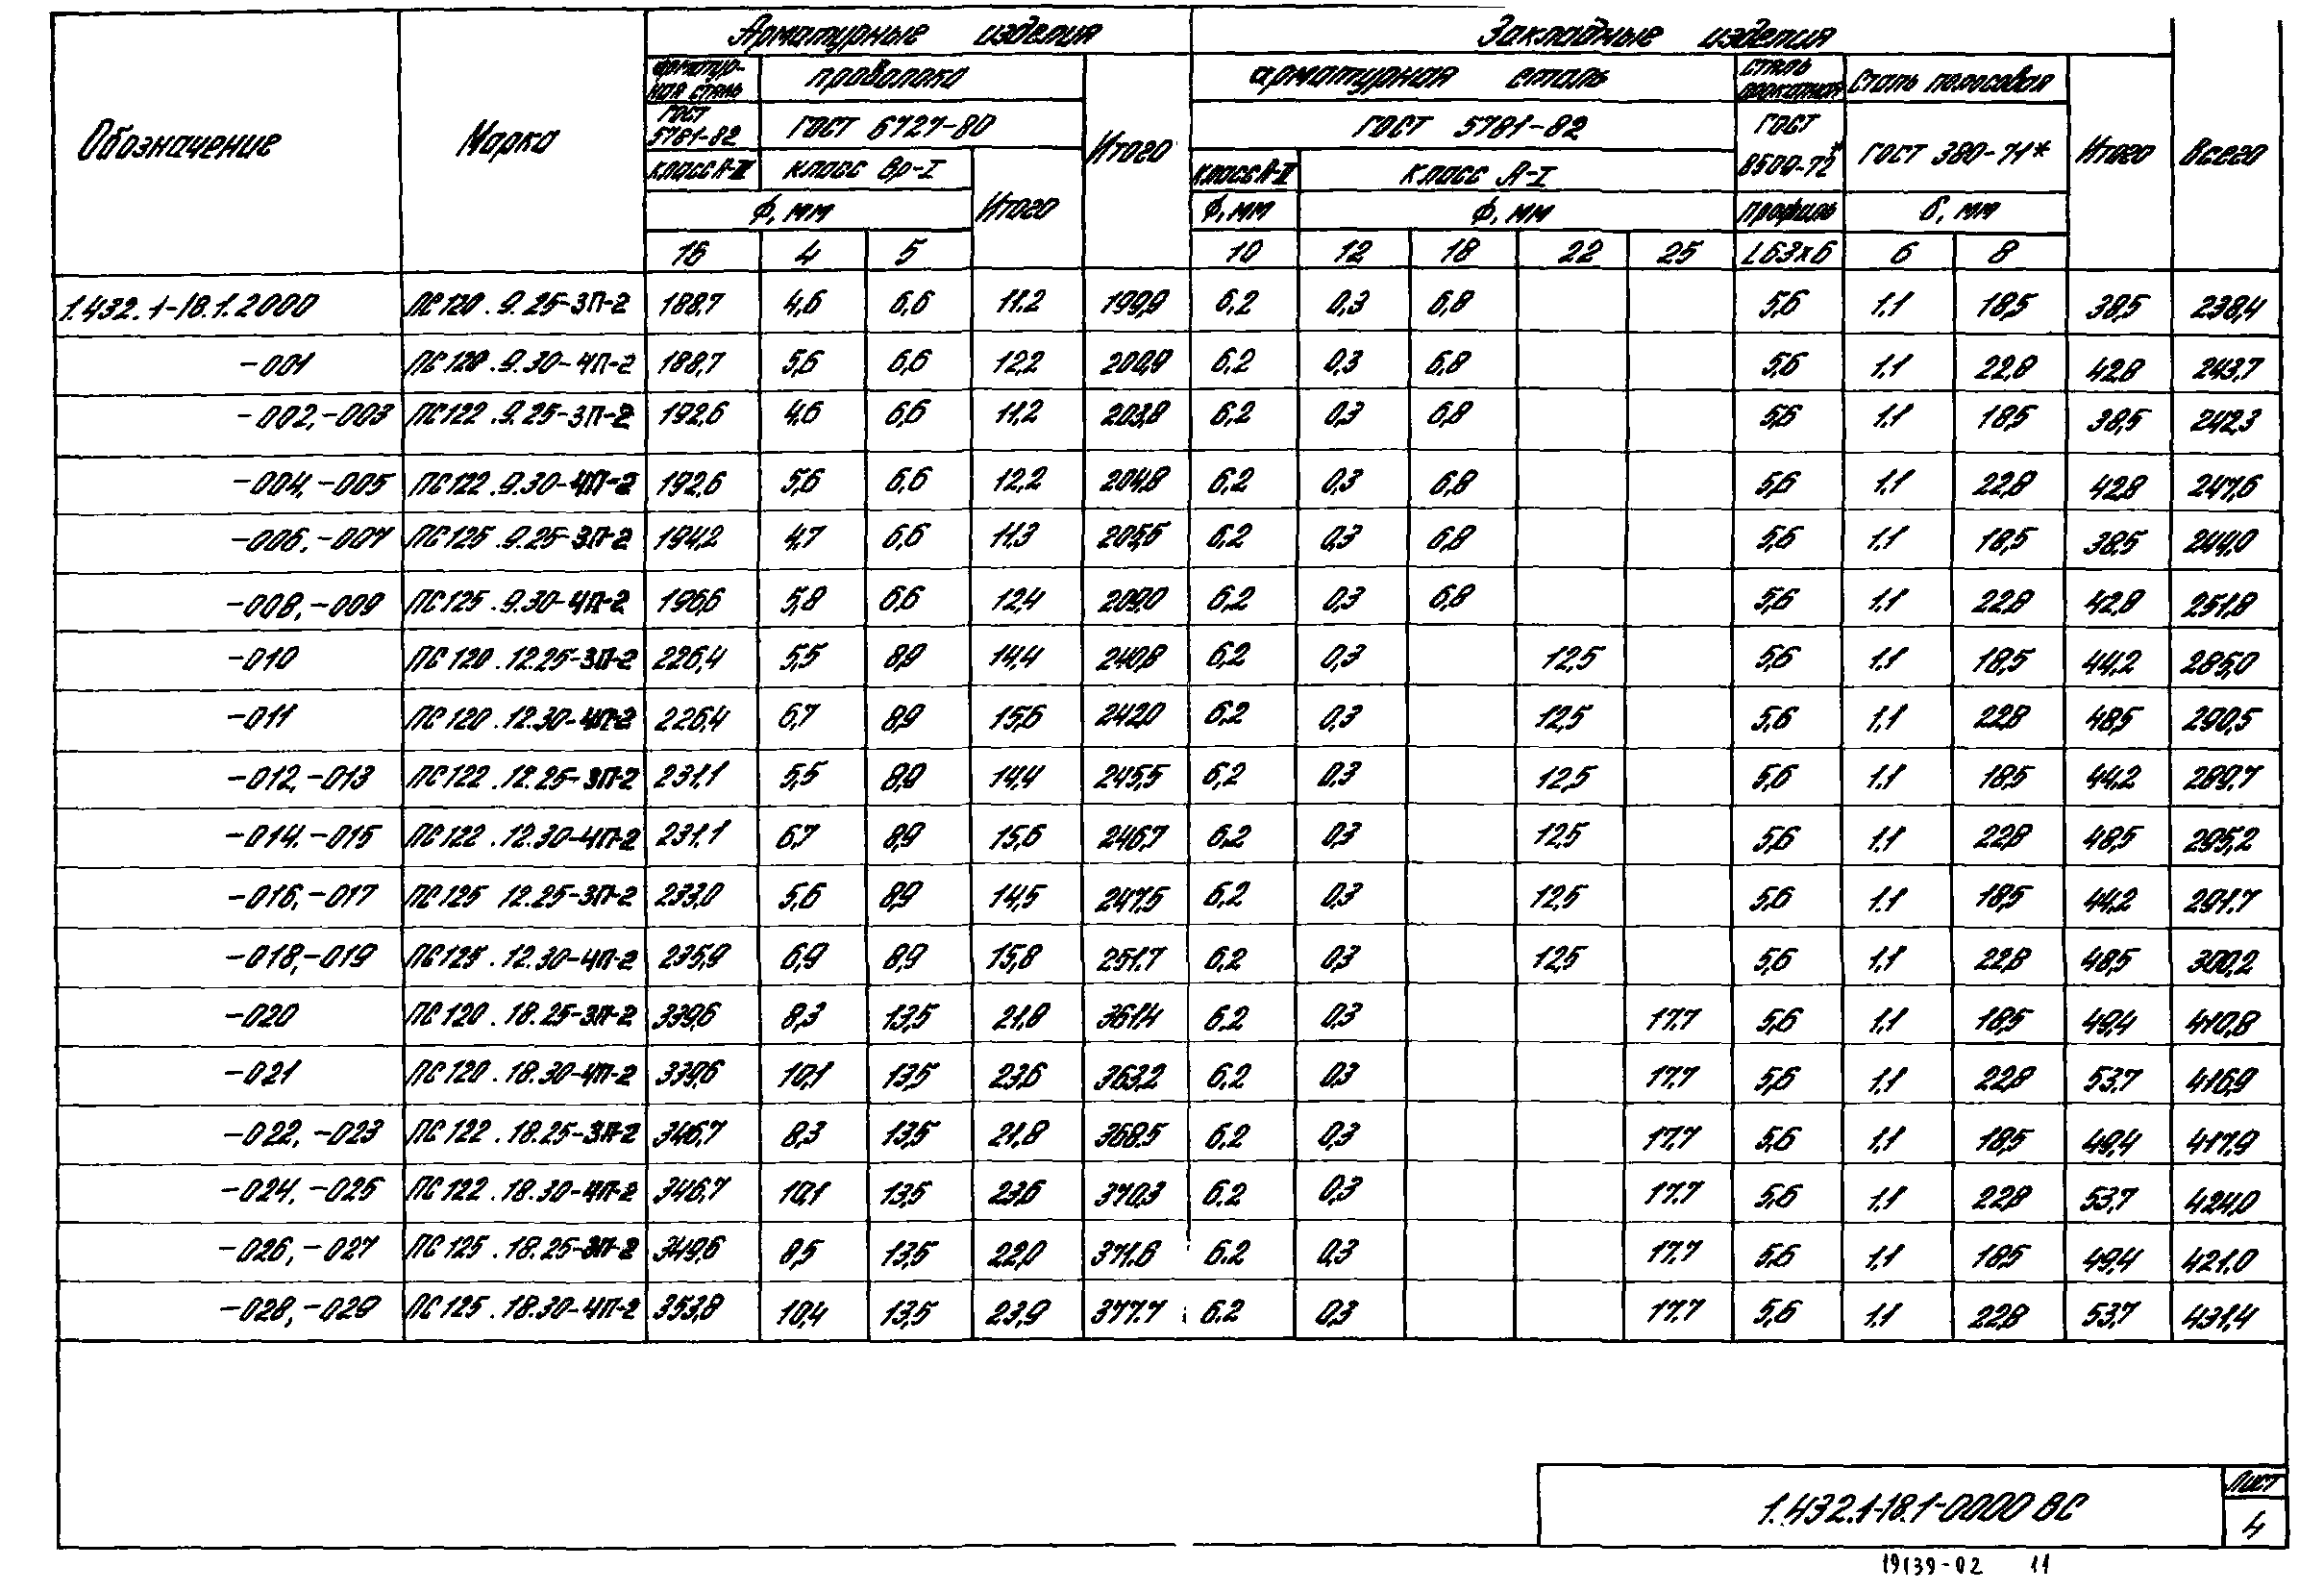 Арматурные изделия Закладные изделия
Обозначение Марка арматур-ная сталь проволока Итого арматурная сталь сталь прокатная Сталь полосовая Итого Всего
ГОСТ 5781-82 ГОСТ 6727-80 ГОСТ 5781-82 ГОСТ 8509-72* ГОСТ 380-71*
класс А-III класс Вр-I Итого класс А-II класс А-I
Ф, мм Ф, мм Ф, мм профиль б, мм
16 4 5 10 12 18 22 25 L63х6 6 8
1.432.1-18.1.2000 ПС120.9.25-3П-2 188,7 4,6 6,6 11.2 199,9 6,2 0,3 6,8 5,6 1.1 18,5 38,5 238,4
-001 ПС120.9.30-4П-2 188,7 5,6 6,6 12,2 200,9 6,2 0,3 6,8 5,6 1.1 22,8 42,8 243,7
-002,-003 ПС122.9.25-3П-2 192,6 4,6 6,6 11,2 203,8 6,2 0,3 6,8 5,6 1.1 18,5 38,5 242,3
-004,-005 ПС122.9.30-4П-2 192,6 5,6 6,6 12,2 204,8 6,2 0,3 6,8 5,6 1.1 22,8 42,8 247,6
-006,-007 ПС125.9.25-3П-2 194,2 4,7 6,6 11,3 205,5 6,2 0,3 6,8 5,6 1.1 18,5 38,5 244,0
-008,-009 ПС125.9.30-4П-2 196,6 5,8 6,6 12,4 209,0 6,2 0,3 6,8 5,6 1.1 22,8 42,8 251,8
-010 ПС120.12.25-3П-2 226,4 5,5 8,9 14,4 240,8 6,2 0,3 12,5 5,6 1.1 18,5 44,2 285,0
-011 ПС120.12.30-4П-2 226,4 6,7 8,9 15,6 242,0 6,2 0,3 12,5 5,6 1.1 22,8 48,5 290,5
-012,-013 ПС122.12.25-3П-2 231,1 5,5 8,9 14,4 245,5 6,2 0,3 12,5 5,6 1.1 18,5 44,2 289,7
-014.-015 ПС122.12.30-4П-2 231,1 6,7 8,9 15,6 246,7 6,2 0,3 12,5 5,6 1.1 22,8 48,5 295,2
-016,-017 ПС125 12.25-3П-2 233,0 5,6 8,9 14,5 247,5 6,2 0,3 12,5 5,6 1.1 18,5 44,2 291.7
-018,-019 ПС125.12.30-4П-2 235,9 6,9 8,9 15,8 251.7 6,2 0,3 12,5 5,6 1.1 22,8 48,5 300,2
-020 ПС120.18.25-3П-2 339,6 8,3 13,5 21,8 361,4 6.2 0,3 17.7 5,6 1.1 18,5 49,4 410,8
-021 ПС120.18.30-4П-2 339,6 10,1 13,5 23,6 363,2 6.2 0,3 17.7 5,6 1.1 22,8 53,7 416,9
-022,-023 ПС122.18.25-3П-2 346,7 8,3 13,5 21,8 368,5 6.2 0,3 17.7 5,6 1,1 18,5 49,4 417,9
-024,-025 ПС122.18.30-4П-2 346,7 10,1 13,5 23,6 370,3 6.2 0,3 17.7 5,6 1.1 22,8 53,7 424,0
-026,-027 ПС125.18.25-3П-2 349,6 8,5 13,5 22,0 371.6 6.2 0,3 17.7 5,6 1,1 18,5 49,4 421.0
-028,-029 ПС125.18.30-4П-2 353,8 10,4 13,5 23,9 377.7 6.2 0,3 17.7 5,6 1.1 22,8 53,7 431,4
1.432.1-18.1-0000 ВС
Лист
4
19139-02 11